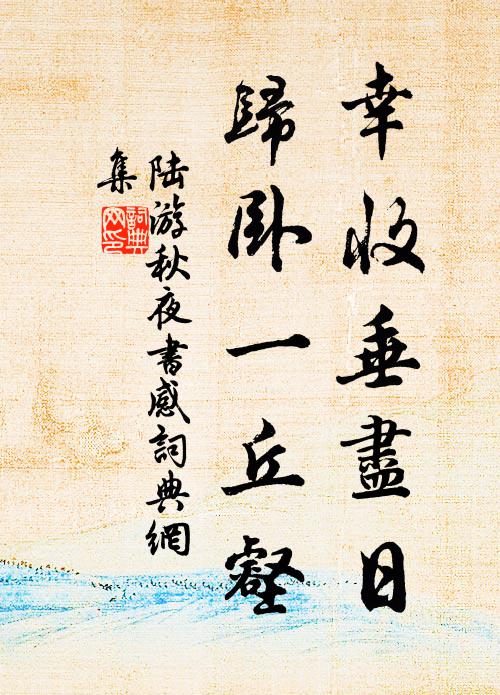 幸收垂盡日
歸臥一丘壑
陸游秋夜書感詞典網
集
詞典
网印